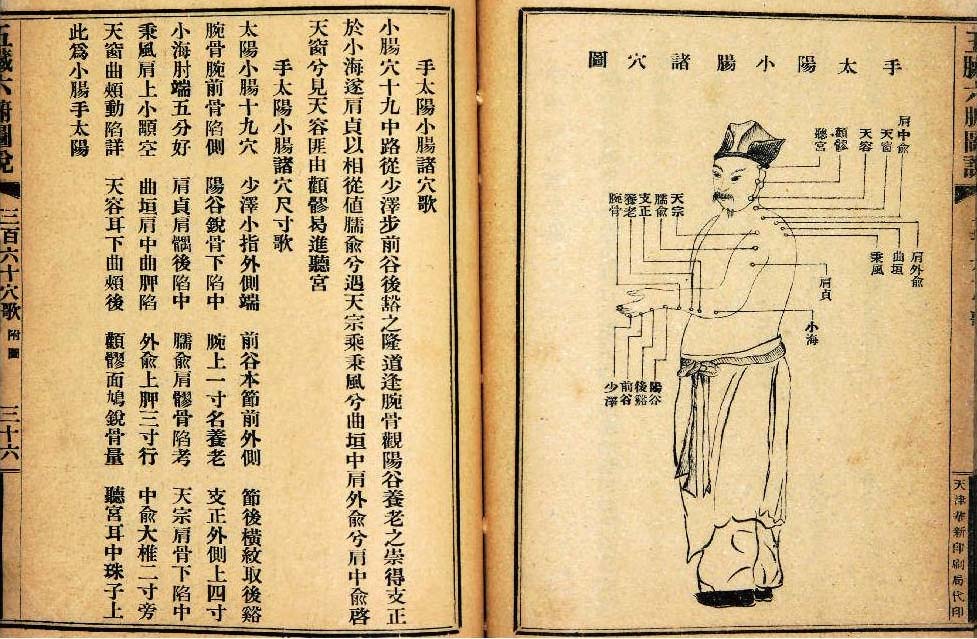 手太陽小腸諸穴圖
肩中兪
天窗
天容
顴髎
聽宮
肩外兪
曲垣
秉風
天宗
臑兪
支正
養老
腕骨
肩貞
小海
陽谷
後谿
前谷
少澤
天津華新印刷局代印
手太陽小腸諸穴歌
小腸穴十九中路從少澤步前谷後谿之隆道逢腕骨觀陽谷養老之崇得支正
於小海遂肩貞以相從値臑兪兮遇天宗乘秉風兮曲垣中肩外兪兮肩中兪啓
天窗兮見天容匪由顴髎曷進聽宮
手太陽小腸諸穴尺寸歌
太陽小腸十九穴 少澤小指外側端 前谷本節前外側 節後橫紋取後谿
腕骨腕前骨陷側 陽谷銳骨下陷中 腕上一寸名養老 支正外側上四寸
小海肘端五分好 肩貞肩髃後陷中 臑兪肩髎骨陷考 天宗肩骨下陷中
秉風肩上小髃空 曲垣肩中曲胛陷 外兪上胛三寸行 中兪大椎二寸旁
天窗曲頰動陷詳 天容耳下曲頰後 顴髎面鳩銳骨量 聽宮耳中珠子上
此爲小腸手太陽
五臟六腑圖說
三百六十穴歌
附圖
三十六